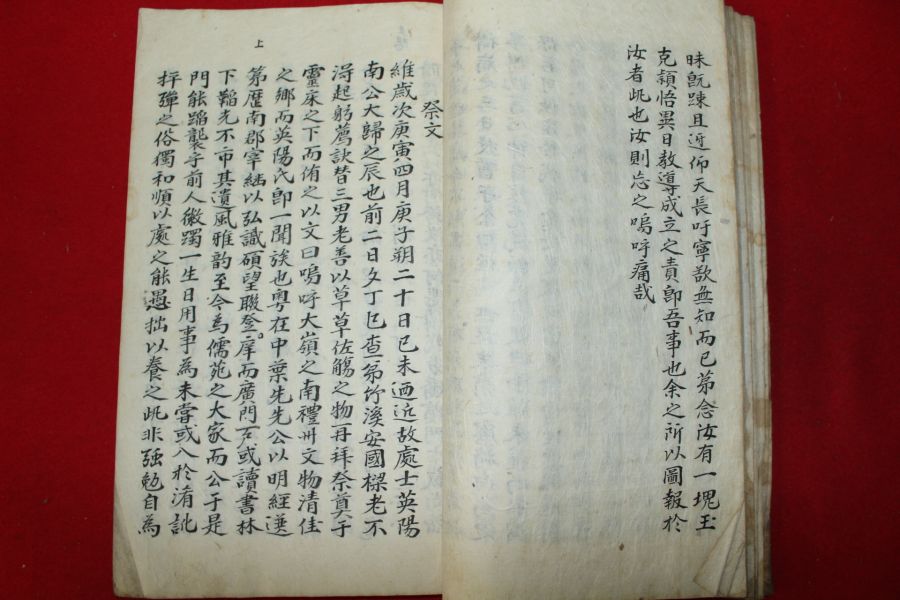 昧旣踈且近仰天長吁寧欲無知而已第念汝有一塊玉
克穎悟異日敎導成立之責卽吾事也余之所以圖報於
汝者此也汝則忘之嗚呼痛哉
祭文
維歲次庚寅四月庚子朔二十日己未迺近故處士英陽
南公大歸之辰也前二日夕丁巳査弟竹溪安國樑老不
得起躬薦訣替三男老善以草草佐觴之物再拜祭奠于
靈床之下而侑之以文曰嗚呼大嶺之南禮州文物淸佳
之鄕而英陽氏卽一聞族也粤在中葉先先公以明經選
第歷南郡宰結以弘識碩望聯登庠而廣門戶或讀書林
下韜光不市其遺風雅韵至今爲儒苑之大家而公于是
門能蹈襲乎前人徽躅一生日用事爲未嘗或入於淆訛
抨彈之俗獨和順以處之能愚拙以養之此非强勉自爲
上